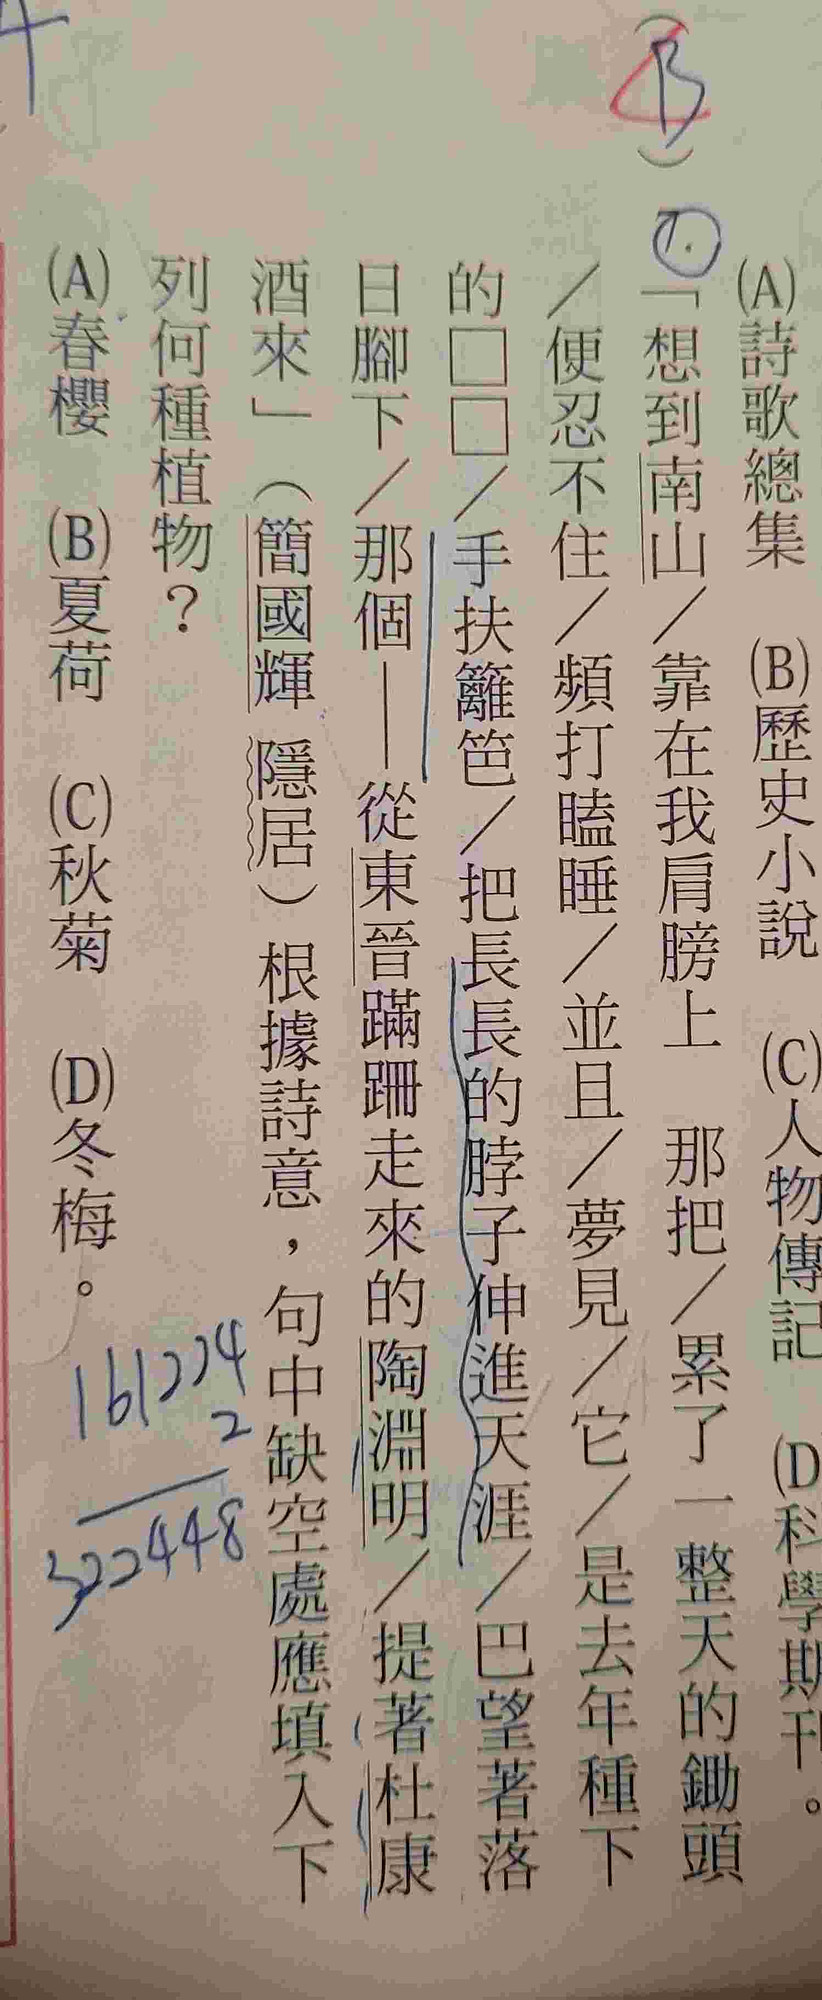 (A)詩歌總集 (B)歷史小說 (C)人物傳記 (D)科學期刊。
(B) 7.「想到南山／靠在我肩膀上 那把／累了一整天的鋤頭
／便忍不住／頻打瞌睡／並且／夢見／它／是去年種下
的□□／手扶籬笆／把長長的脖子伸進天涯／巴望著落
日腳下／那個——從東晉蹣跚走來的陶淵明／提著杜康
酒來」（簡國輝 隱居）根據詩意，句中缺空處應填入下
列何種植物？
(A)春櫻 (B)夏荷 (C)秋菊 (D)冬梅。
161224
2
322448